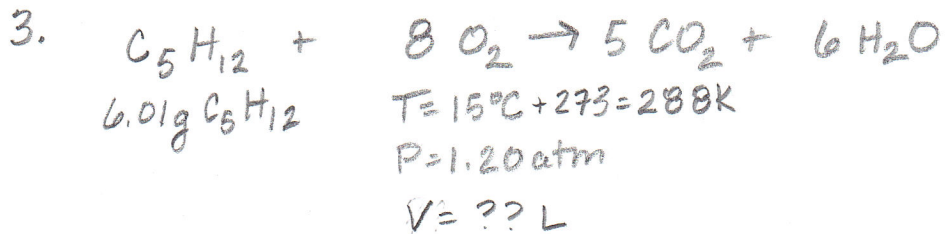 3. C₅H₁₂ + 8 O₂ → 5 CO₂ + 6 H₂O
6.01g C₅H₁₂ T= 15°C + 273 = 288K
P=1.20 atm
V= ?? L